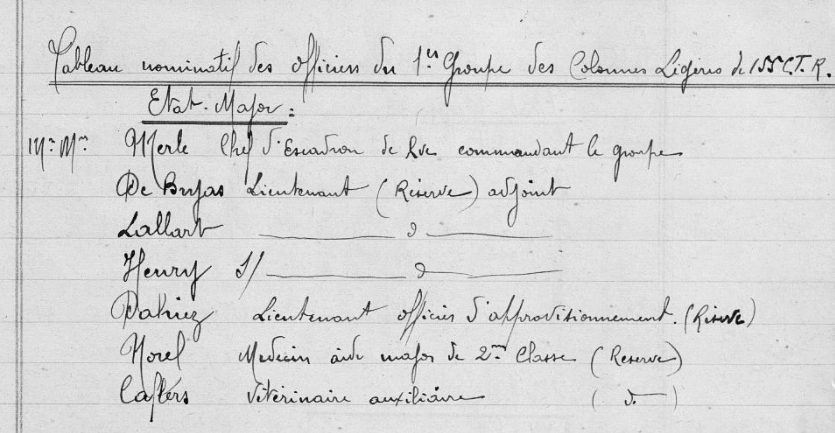 Tableau nominatif des officiers du 1er Groupe des Colonnes Légères de 155 C.T.R.
Etat-Major:
Mr Mrs Merle Chef d'Escadron de Rve commandant le groupe
De Bryas Lieutenant (Réserve) adjoint
Lallart — d —
Henry S/ — d —
Lieutenant officier d'approvisionnement. (Réserve)
Morel Medecin aide major de 2me Classe (Reserve)
Vétérinaire auxiliaire ( d — )